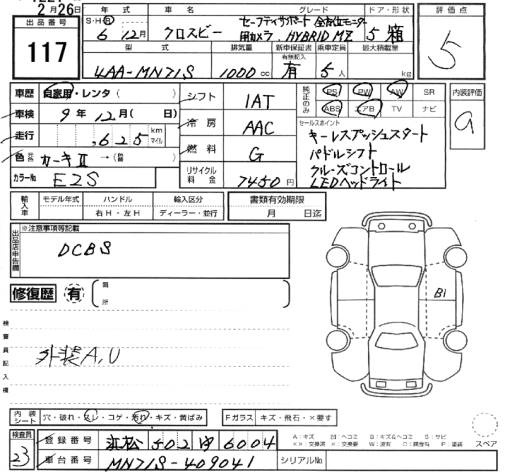 2月26日
出品番号
117
年式 車名 グレード ドア・形状 評価点
S・H・R 6 12月 クロスビー セーフティサポート 全方位モニター用カメラ HYBRID MZ 5 箱
5
型式 排気量 新車保証書 乗車定員 最大積載量
有無記入
4AA-MN71S 1000cc 有 5人 kg
車歴 自家用・レンタ( )
シフト 1AT
純正のみ PS PW AW SR
ABS エアB TV ナビ
内装評価
a
車検 9年12月( 日)
冷房 AAC
セールスポイント
キーレスプッシュスタート
パドルシフト
クルーズコントロール
LEDヘッドライト
走行 ,625 kmマイル
燃料 G
色 カーキⅡ →( )
カラーNo E2S
リサイクル料金 7450円
輸入車 モデル年式 ハンドル 輸入区分
右H・左H ディーラー・並行
書類有効期限
月 日迄
出品店申告欄
※注意事項等記載
DCBS
修復歴 有
箇所
B1
検査員記入欄
外装A,U
内装シート 穴・破れ・スレ・コゲ・汚れ・キズ・黄ばみ
Fガラス キズ・飛石・×要す
検査員
23
登録番号 浜松 502 ゆ 6004
車台番号 MN71S-409041
シリアルNo
スペア